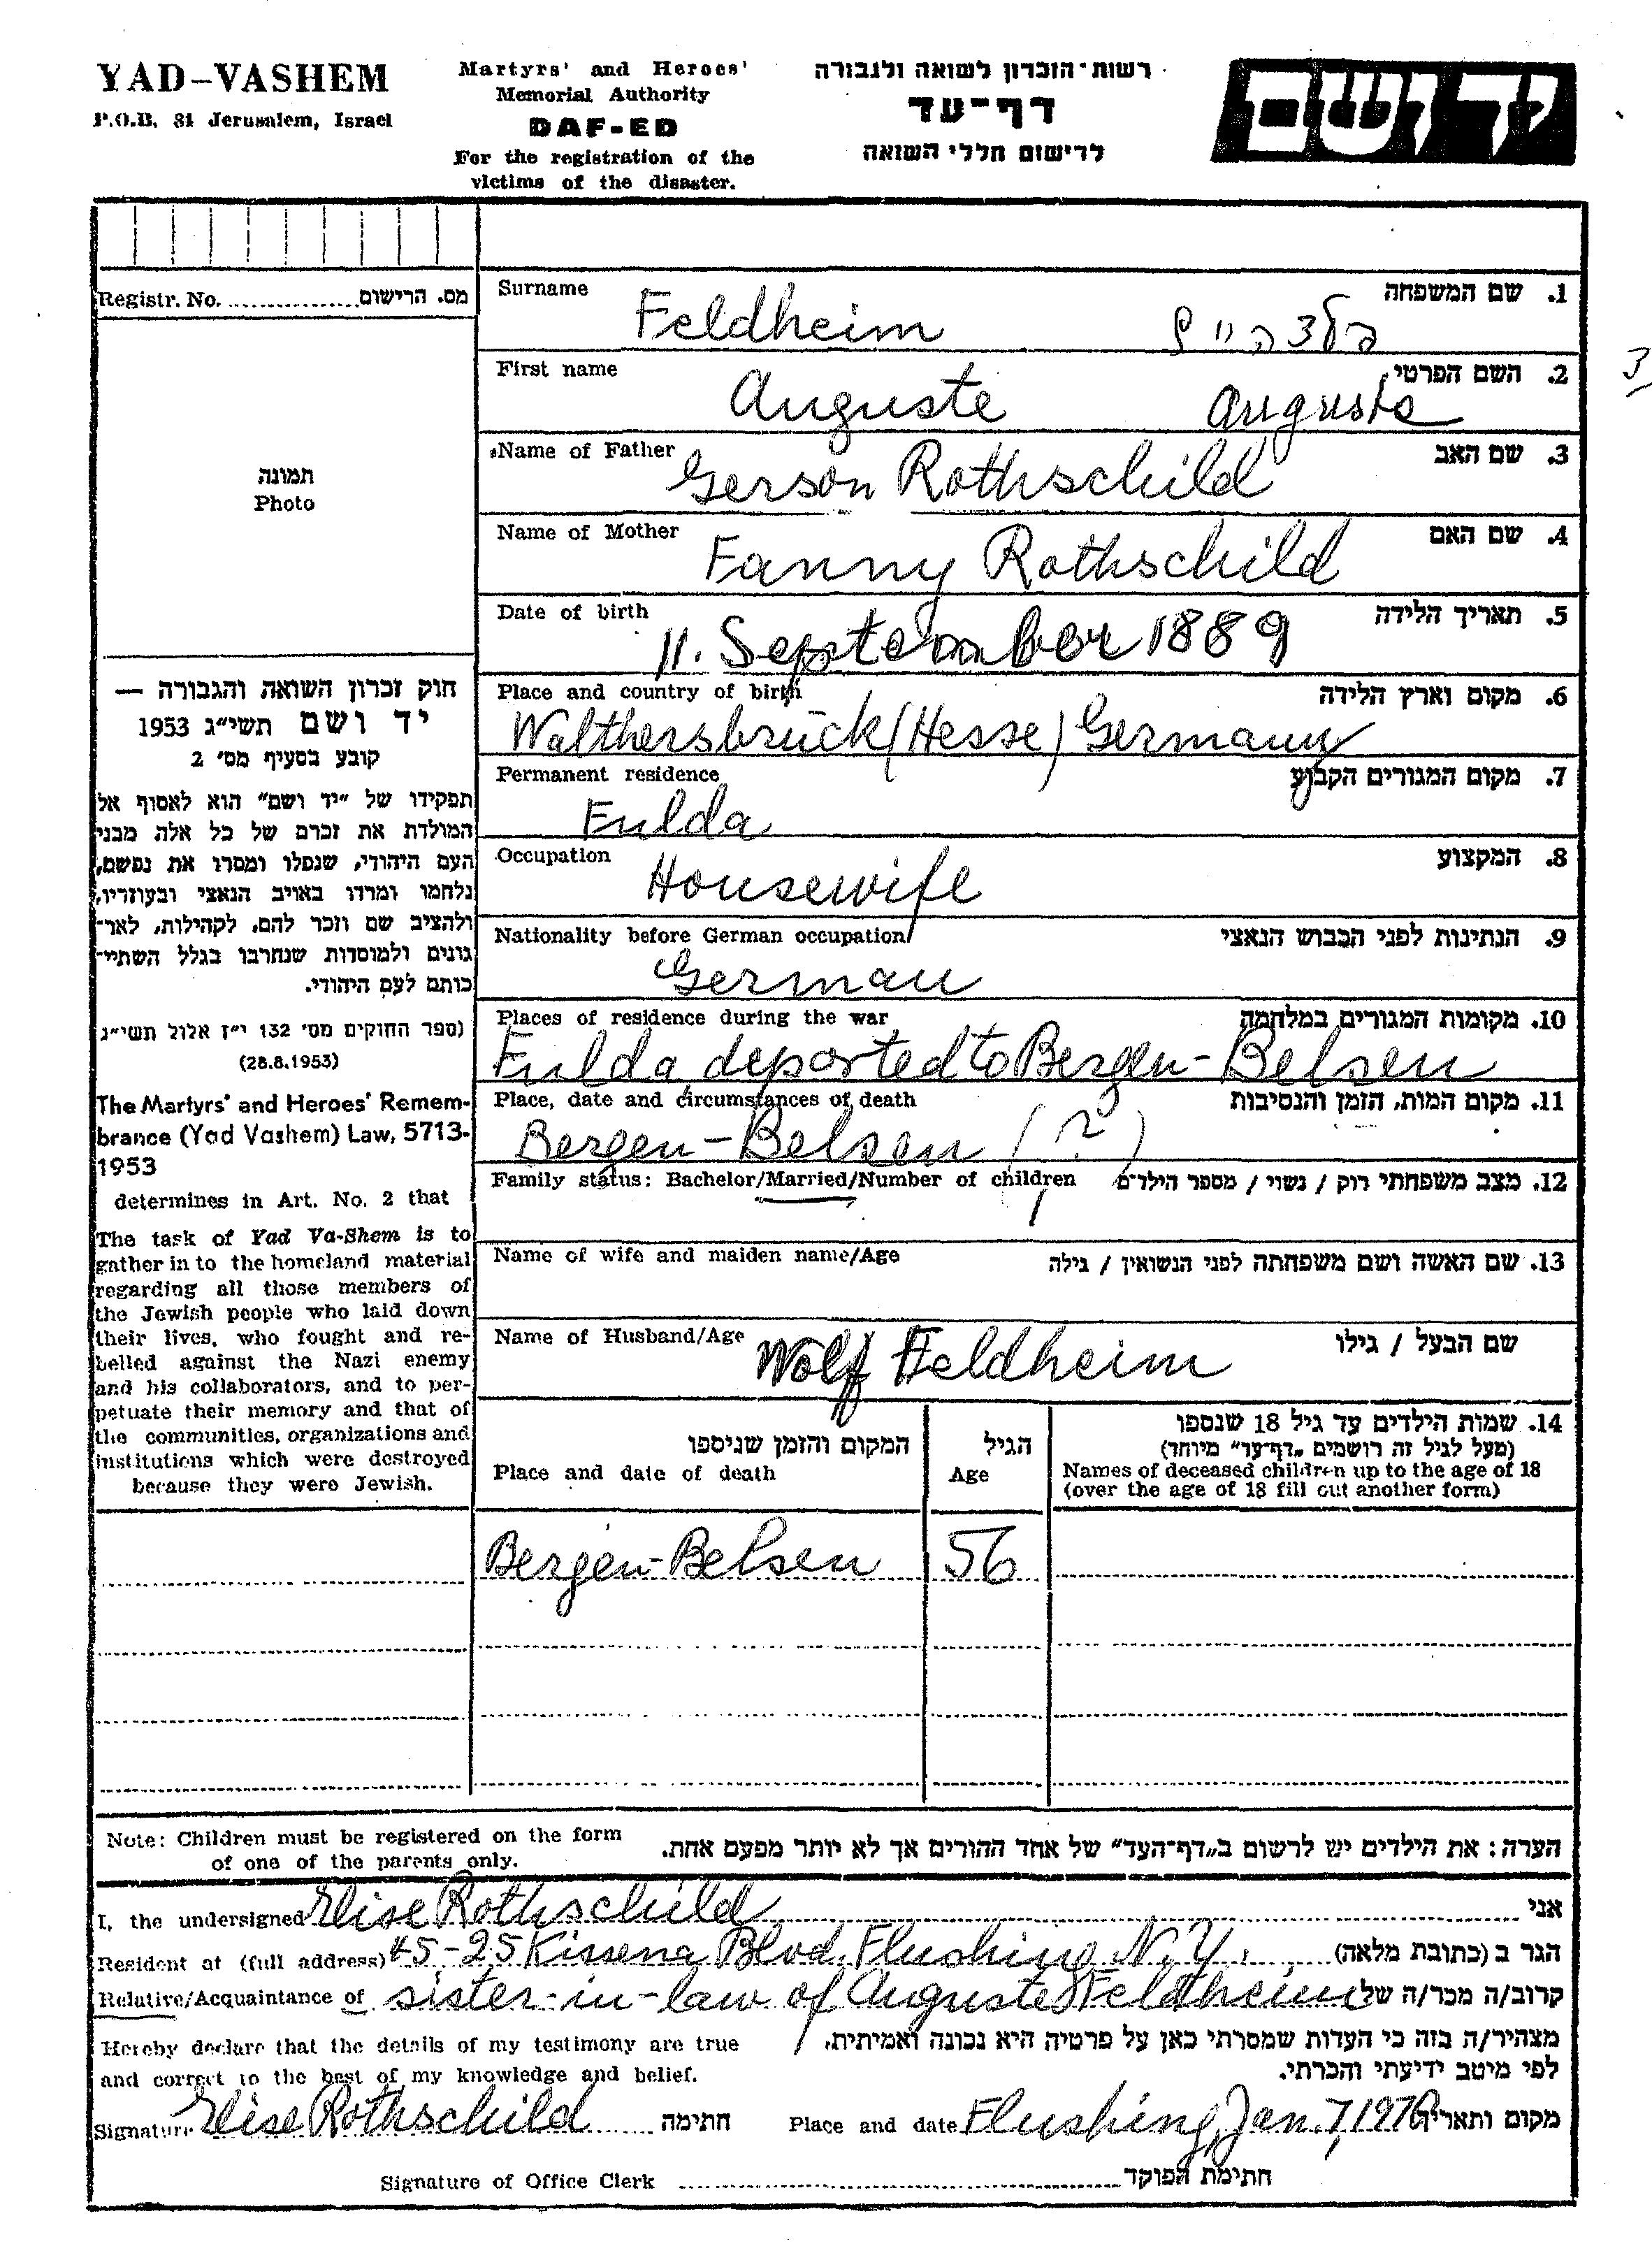 YAD-VASHEM
P.O.B. 84 Jerusalem, Israel
Martyrs' and Heroes'
Memorial Authority
DAF-ED
For the registration of the
victims of the disaster.
רשות-הזכרון לשואה ולגבורה
דף-עד
לרישום חללי השואה
יד ושם
Registr. No. מס. הרישום
תמונה
Photo
חוק זכרון השואה והגבורה —
יד ושם תשי״ג 1953
קובע בסעיף מס׳ 2
תפקידו של ״יד ושם״ הוא לאסוף אל
המולדת את זכרם של כל אלה מבני
העם היהודי, שנפלו ומסרו את נפשם,
נלחמו ומרדו באויב הנאצי ובעוזריו,
ולהציב שם וזכר להם, לקהילות, לאר-
גונים ולמוסדות שנחרבו בגלל השתיי-
כותם לעם היהודי.
(ספר החוקים מס׳ 132 י״ז אלול תשי״ג
(28.8.1953)
The Martyrs' and Heroes' Remem-
brance (Yad Vashem) Law, 5713-
1953
determines in Art. No. 2 that
The task of Yad Va-Shem is to
gather in to the homeland material
regarding all those members of
the Jewish people who laid down
their lives, who fought and re-
belled against the Nazi enemy
and his collaborators, and to per-
petuate their memory and that of
the communities, organizations and
institutions which were destroyed
because they were Jewish.
Surname 1. שם המשפחה
Feldheim
First name 2. השם הפרטי
Auguste Auguste
3
Name of Father 3. שם האב
Gerson Rothschild
Name of Mother 4. שם האם
Fanny Rothschild
Date of birth 5. תאריך הלידה
11. September 1889
Place and country of birth 6. מקום וארץ הלידה
Walthersbrück (Hesse) Germany
Permanent residence 7. מקום המגורים הקבוע
Fulda
Occupation 8. המקצוע
Housewife
Nationality before German occupation 9. הנתינות לפני הכבוש הנאצי
German
Places of residence during the war 10. מקומות המגורים במלחמה
Fulda, deported to Bergen-Belsen
Place, date and circumstances of death 11. מקום המות, הזמן והנסיבות
Bergen-Belsen (?)
Family status: Bachelor/Married/Number of children 12. מצב משפחתי רוק / נשוי / מספר הילדים
1
Name of wife and maiden name/Age 13. שם האשה ושם משפחתה לפני הנשואין / גילה
Name of Husband/Age שם הבעל / גילו
Wolf Feldheim
המקום והזמן שניספו
Place and date of death
הגיל
Age
14. שמות הילדים עד גיל 18 שנספו
(מעל לגיל זה רושמים ״דף-עד״ מיוחד)
Names of deceased children up to the age of 18
(over the age of 18 fill out another form)
Bergen-Belsen 56
Note: Children must be registered on the form
of one of the parents only.
הערה: את הילדים יש לרשום ב״דף-העד״ של אחד ההורים אך לא יותר מפעם אחת.
I, the undersigned Elise Rothschild אני
Resident at (full address) 45-25 Kissena Blvd. Flushing N.Y. הגר ב (כתובת מלאה)
Relative/Acquaintance of sister-in-law of Auguste Feldheim קרוב/ה מכר/ה של
Hereby declare that the details of my testimony are true
and correct to the best of my knowledge and belief.
מצהיר/ה בזה כי העדות שמסרתי כאן על פרטיה היא נכונה ואמיתית,
לפי מיטב ידיעתי והכרתי.
Signature Elise Rothschild חתימה Place and date Flushing, Jan. 7, מקום ותאריך
Signature of Office Clerk חתימת הפוקד